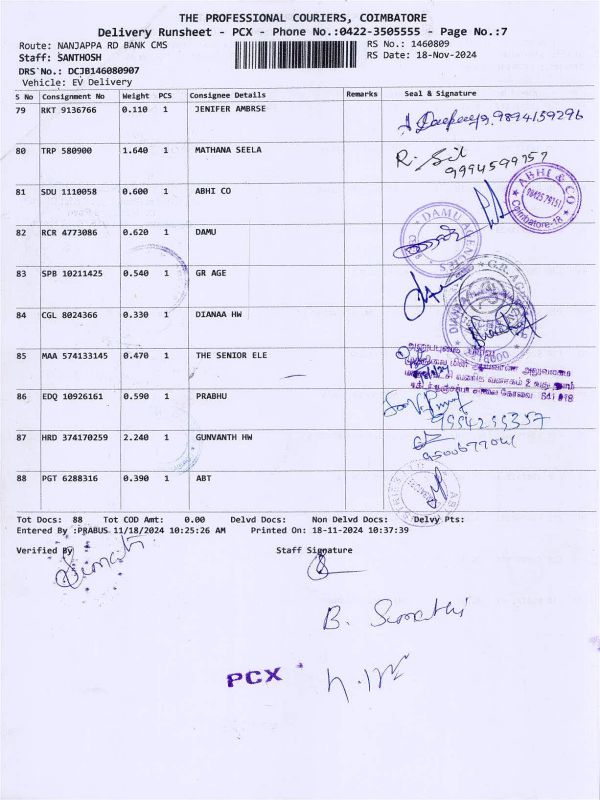 THE PROFESSIONAL COURIERS, COIMBATORE
Delivery Runsheet - PCX - Phone No.:0422-3505555 - Page No.:7
Route: NANJAPPA RD BANK CMS RS No.: 1460809
Staff: SANTHOSH RS Date: 18-Nov-2024
DRS No.: DCJB146080907
Vehicle: EV Delivery
S No Consignment No Weight PCS Consignee Details Remarks Seal & Signature
79 RKT 9136766 0.110 1 JENIFER AMBRSE 9894159296
80 TRP 580900 1.640 1 MATHANA SEELA 9994599757
81 SDU 1110058 0.600 1 ABHI CO ABHI & CO Coimbatore-18
82 RCR 4773086 0.620 1 DAMU DAMU AGENCIES
83 SPB 10211425 0.540 1 GR AGE
84 CGL 8024366 0.330 1 DIANAA HW
85 MAA 574133145 0.470 1 THE SENIOR ELE
86 EDQ 10926161 0.590 1 PRABHU
87 HRD 374170259 2.240 1 GUNVANTH HW
88 PGT 6288316 0.390 1 ABT
Tot Docs: 88 Tot COD Amt: 0.00 Delvd Docs: Non Delvd Docs: Delvy Pts:
Entered By :PRABUS 11/18/2024 10:25:26 AM Printed On: 18-11-2024 10:37:39
Verified By Staff Signature
B. Sumathi
PCX